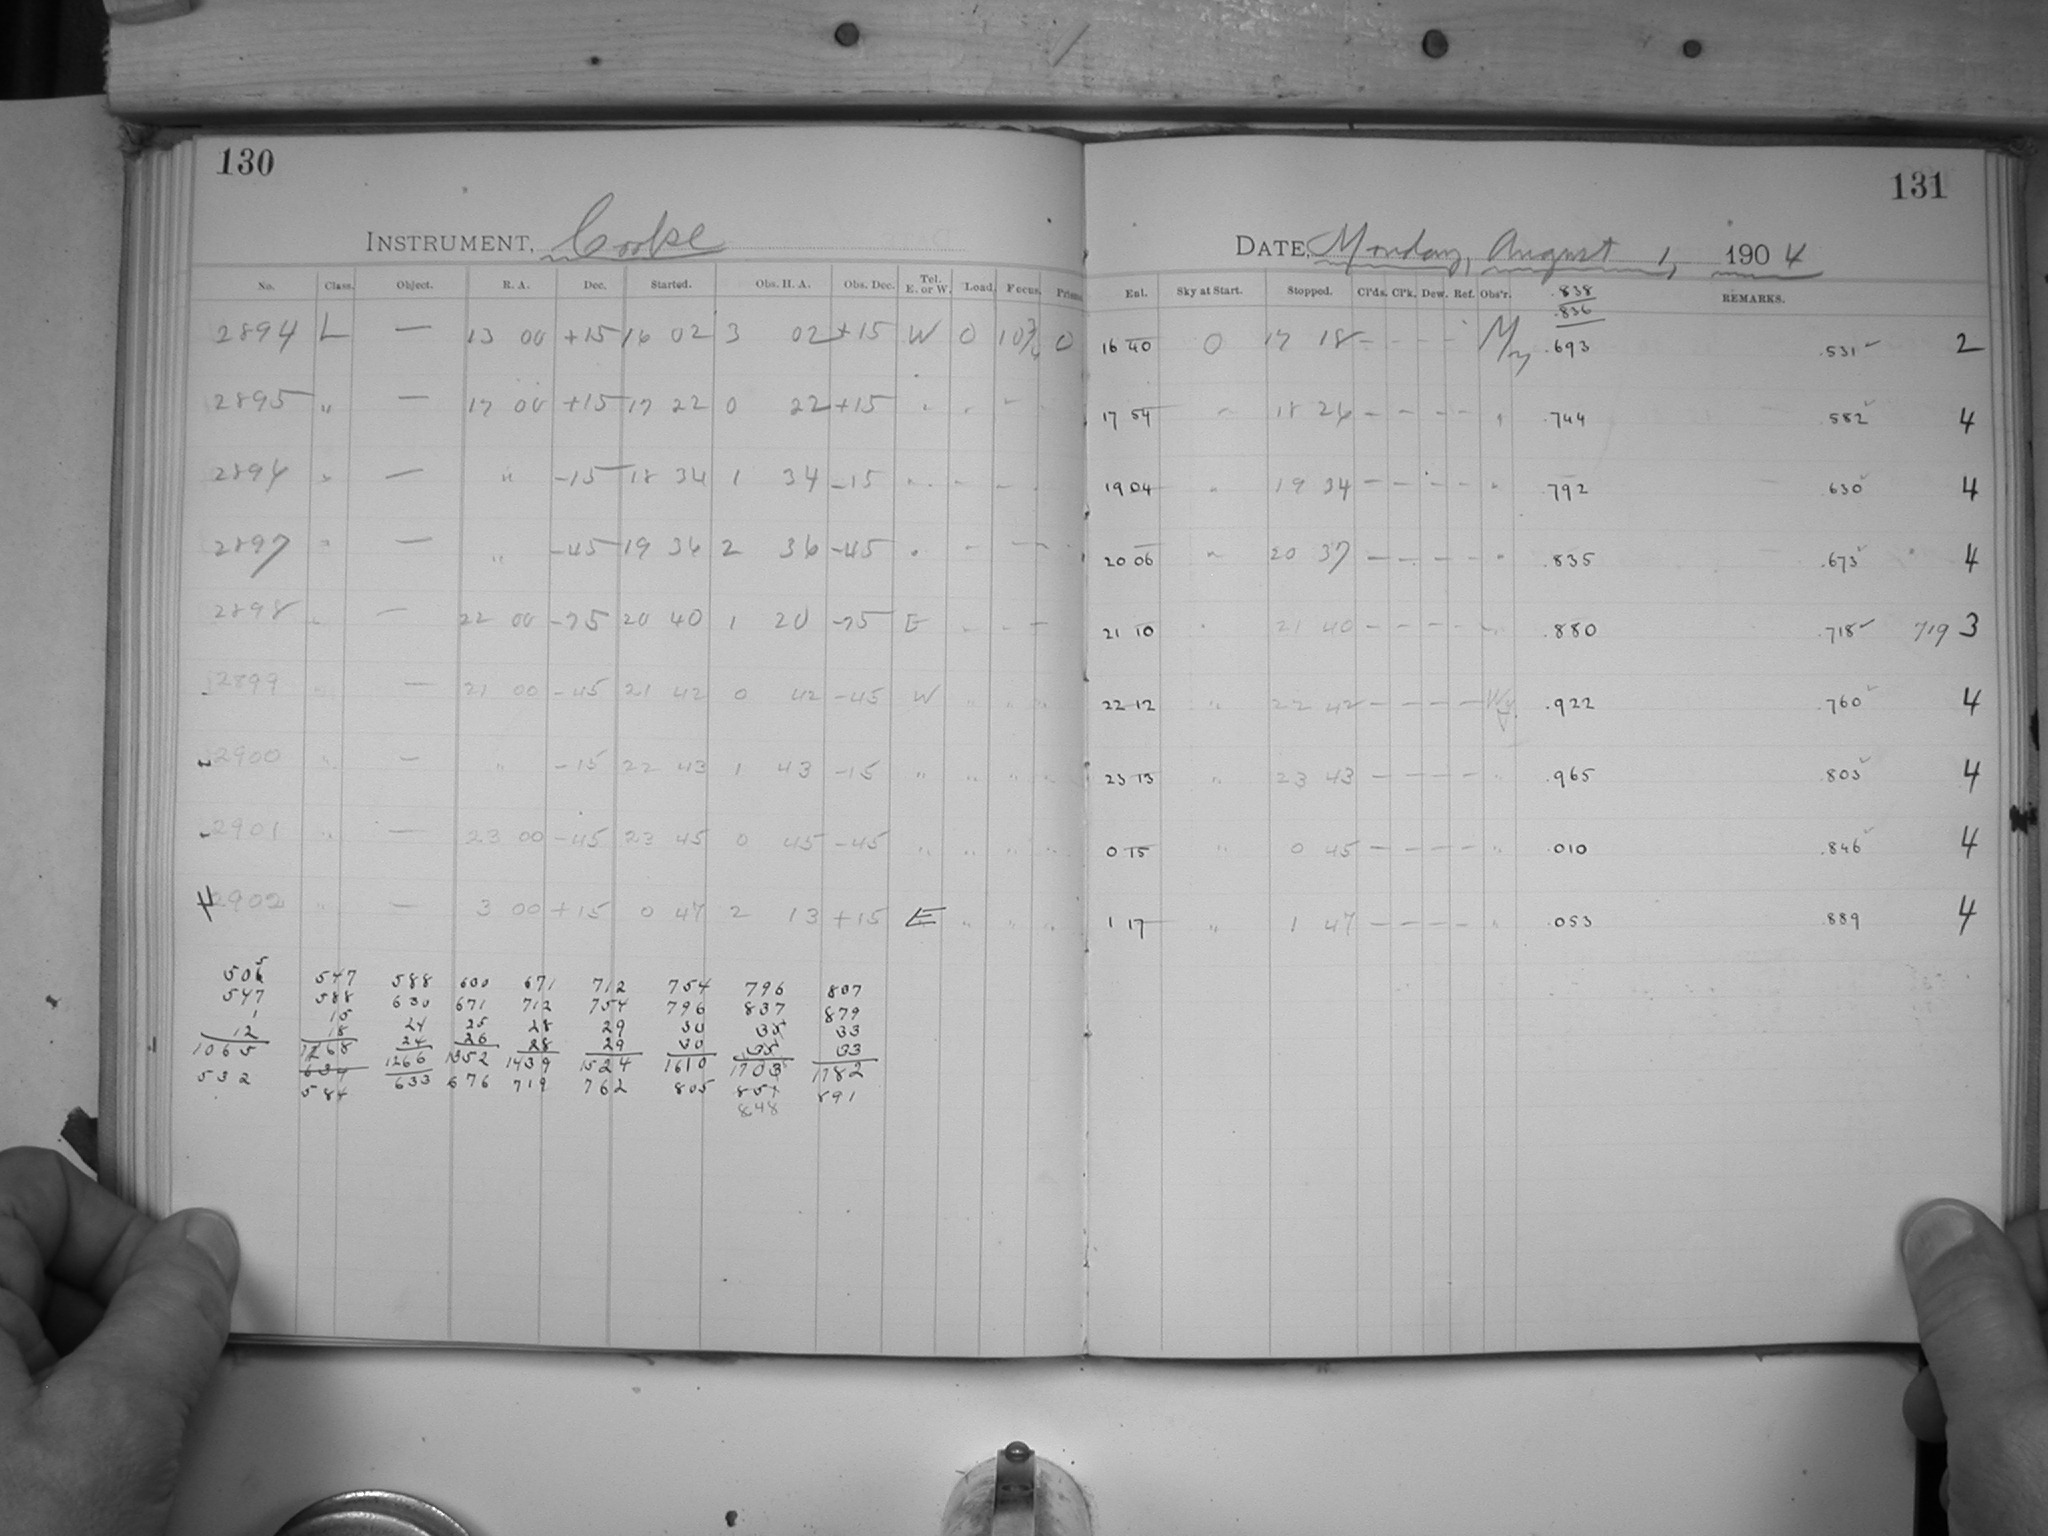 130
INSTRUMENT, Cooke
No. Class. Object. R. A. Dec. Started. Obs. H. A. Obs. Dec. Tel. E. or W. Load. Focus. Prisms
2894 L — 13 00 +15 16 02 3 02 +15 W 0 0
2895 " — 17 00 +15 17 22 0 22 +15 " " " "
2896 " — " -15 18 34 1 34 -15 " " " "
2897 " — " -45 19 36 2 36 -45 " " " "
2898 " — 22 00 -75 20 40 1 20 -75 E " " "
2899 " — 21 00 -45 21 42 0 42 -45 W " " "
2900 " — " -15 22 43 1 43 -15 " " " "
2901 " — 23 00 -45 23 45 0 45 -45 " " " "
2902 " — 3 00 +15 0 47 2 13 +15 E " " "
506 547 588 600 671 712 754 796 807
547 588 630 671 712 754 796 837 879
1 15 24 25 28 29 30 33
12 18 24 26 28 29 30 33
1065 1168 1266 1352 1439 1524 1610 1703 1782
532 634 633 676 719 762 805 891
584 848
131
DATE, Monday, August 1, 1904
Eal. Sky at Start. Stopped. Cl'ds. Cl'k. Dew. Ref. Obs'r. REMARKS.
.838
.836
16 40 0 17 18 - - - - My .693 .531 2
17 54 " 18 26 - - - - " .744 .582 4
19 04 " 19 34 - - - - " .792 .630 4
20 06 " 20 37 - - - - " .835 .673 4
21 10 " 21 40 - - - - " .880 .718 719 3
22 12 " 22 42 - - - - .922 .760 4
23 13 " 23 43 - - - - " .965 .803 4
0 15 " 0 45 - - - - " .010 .846 4
1 17 " 1 47 - - - - " .053 .889 4